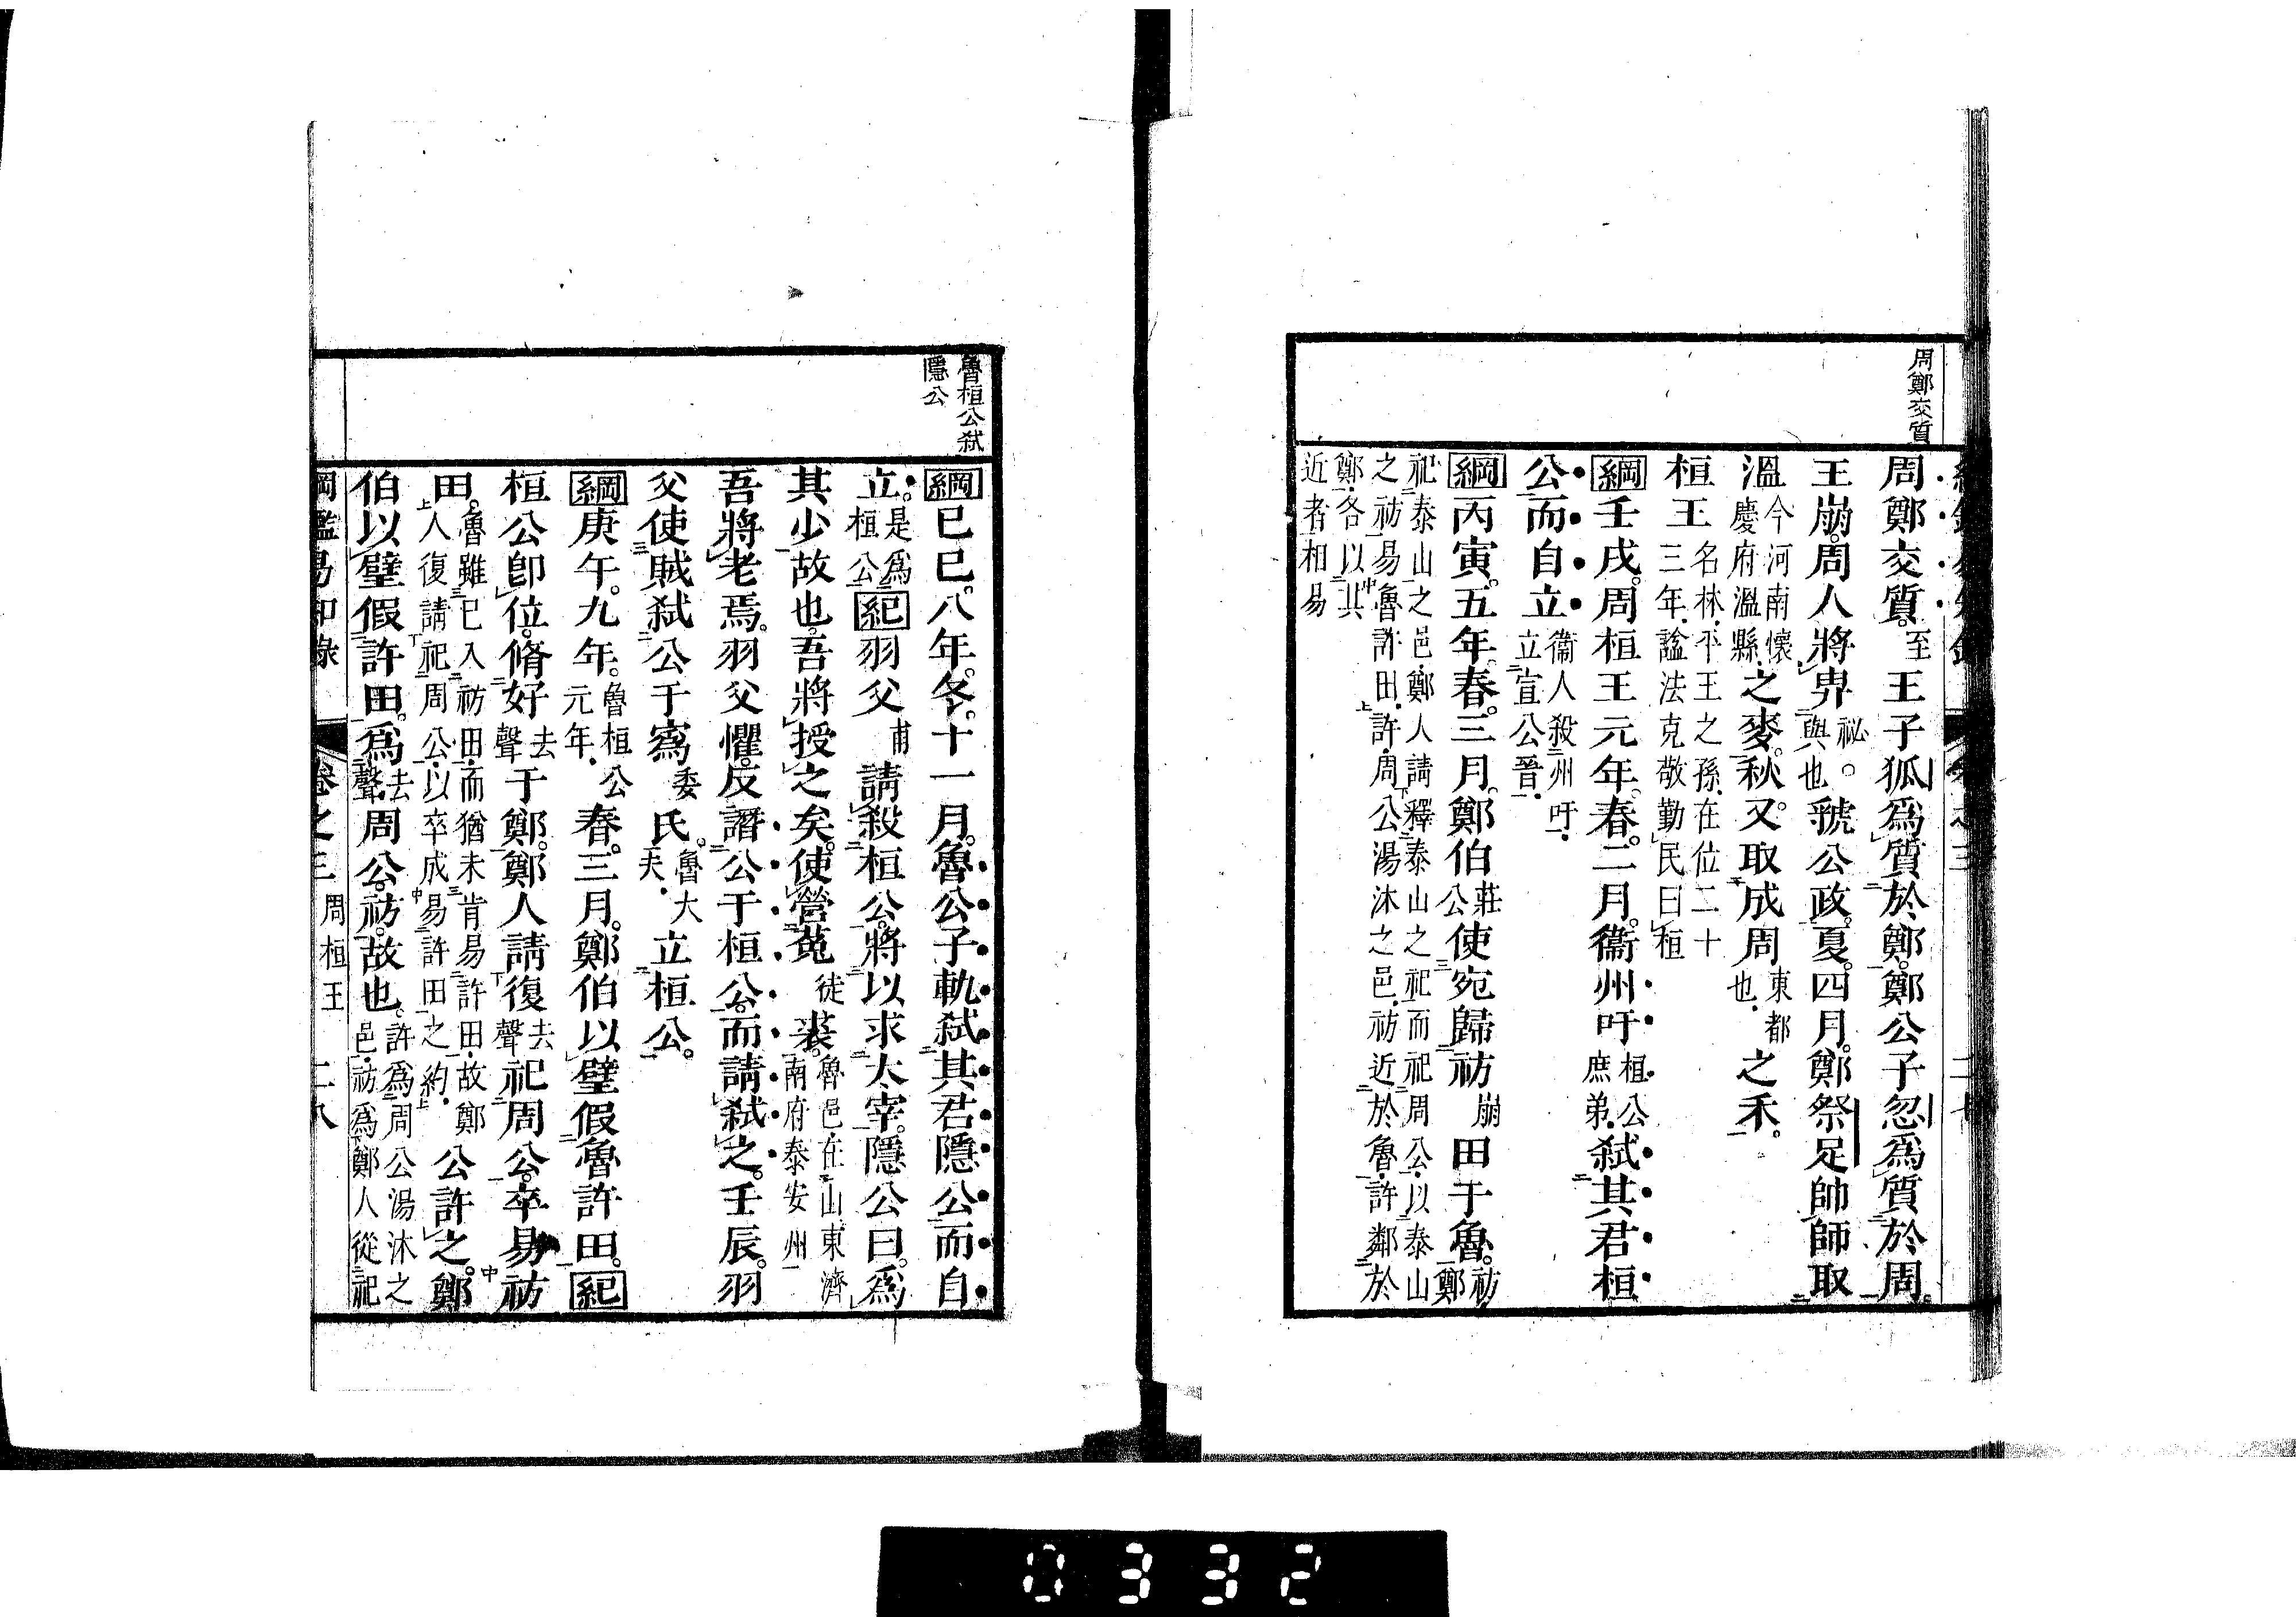 周鄭交質
周鄭交質。至王子狐爲質於鄭。鄭公子忽爲質於周。
王崩。周人將畀祕。與也虢公政。夏。四月。鄭祭足帥師取
溫今河南懷慶府溫縣之麥。秋。又取成周東都也之禾。
桓王名林。平王之孫。在位二十三年。謚法克敬勤民曰桓
綱壬戌。周桓王元年。春。二月。衞州吁桓公庶弟弑其君桓
公而自立衞人殺州吁。立宣公晉。
綱丙寅。五年。春。三月。鄭伯莊公使宛歸祊崩田于魯。祊鄭
祀泰山之邑。鄭人請釋泰山之祀而祀周公。以泰山
之祊易魯許田。許周公湯沐之邑。祊近於魯。許鄰於
鄭。各以其
近者相易
魯桓公弑
隱公
綱己巳。八年。冬。十一月。魯公子軌弑其君隱公而自
立。是爲桓公紀羽父甫請殺桓公。將以求大宰。隱公曰。爲
其少故也。吾將授之矣。使營菟徒裘。魯邑。在山東濟南府泰安州
吾將老焉。羽父懼。反譖公于桓公。而請弑之。壬辰。羽
父使賊弑公于寪委氏。魯大夫。立桓公。
綱庚午。九年。魯桓公元年。春。三月。鄭伯以璧假魯許田。紀
桓公卽位。脩好去聲于鄭。鄭人請復去聲祀周公。卒易祊
田。魯雖已入祊田。而猶未肯易許田。故鄭人復請祀周公。以卒成易許田之約。公許之。鄭
伯以璧假許田。爲去聲周公。祊。故也。許爲周公湯沐之邑。祊爲鄭人從祀
綱鑑易知錄 卷之三 周桓王 二八
0332